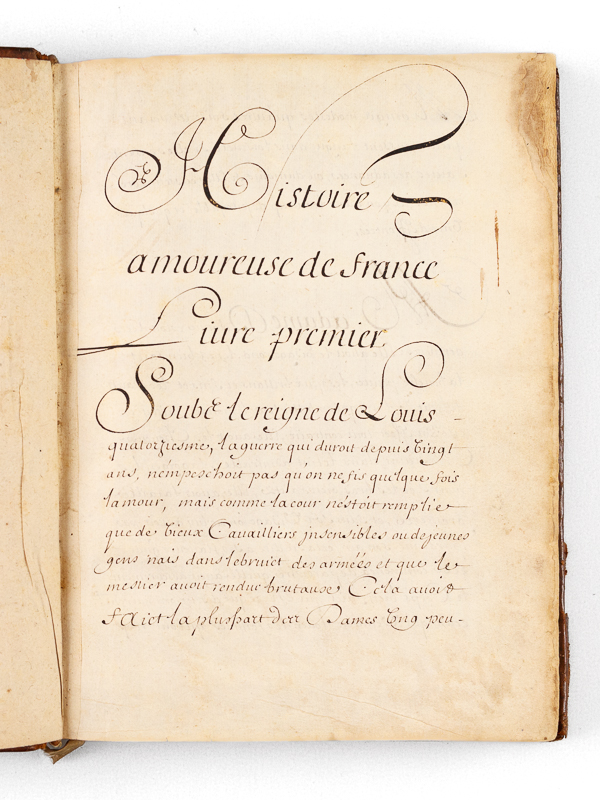 Histoire
amoureuse de france
Liure premier
Soubz le reigne de Louis -
quatorziesme, la guerre qui duroit depuis vingt
ans, n'empeschoit pas qu'on ne fis quelque fois
lamour, mais comme la cour n'estoit remplie
que de vieux Cavailliers jnsensibles ou de jeunes
gens nais dans le bruict des armées et que le
mestier auoit rendue brutaux Cela auoit
faict la pluspart des Dames vng peu-